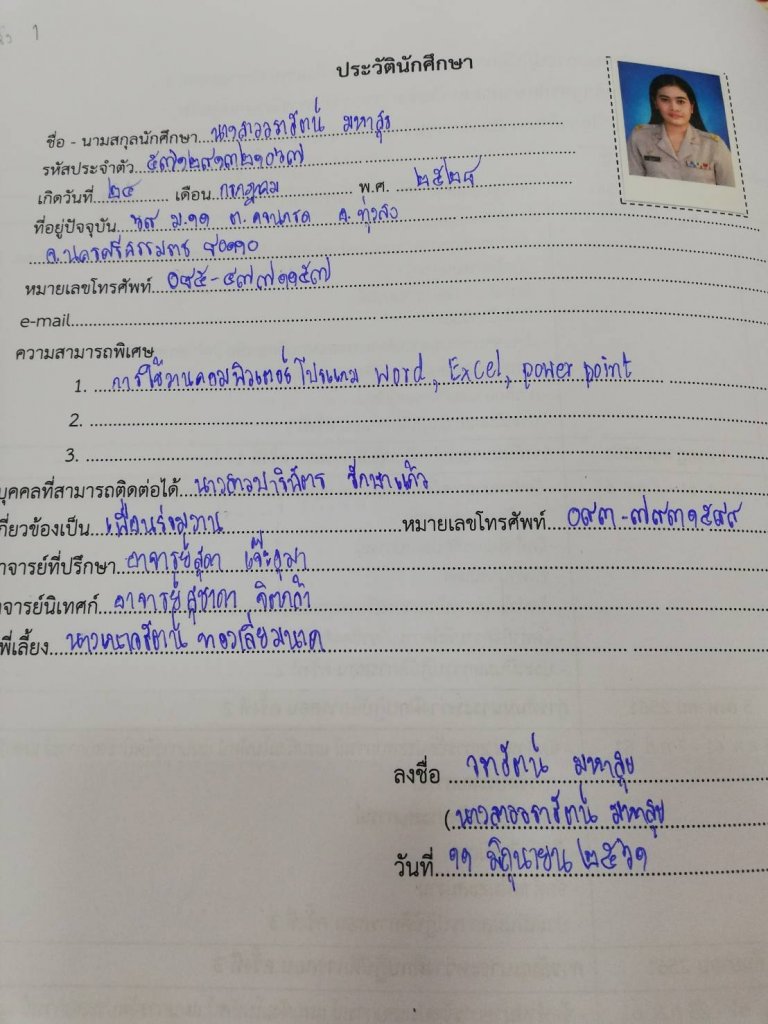 1
ประวัตินักศึกษา
ชื่อ - นามสกุลนักศึกษา นางสาวจารุรัตน์ มหาสุข
รหัสประจำตัว ๕๗๑๒๙๑๓๒๑๐๖๗
เกิดวันที่ ๒๔ เดือน กรกฎาคม พ.ศ. ๒๕๒๘
ที่อยู่ปัจจุบัน ม.๑๑ ต. อ. ทุ่งสง
จ.นครศรีธรรมราช ๘๐๑๑๐
หมายเลขโทรศัพท์ ๐๙๕-๔๗๗๑๑๕๗
e-mail
ความสามารถพิเศษ
1. การใช้งานคอมพิวเตอร์ โปรแกรม Word, Excel, power point
2.
3.
บุคคลที่สามารถติดต่อได้ นางสาวปาริฉัตร รักษาแก้ว
กี่ยวข้องเป็น เพื่อนร่วมงาน หมายเลขโทรศัพท์ ๐๙๓-๗๙๓๑๕๙๙
าจารย์ที่ปรึกษา อาจารย์สุดา เจ๊ะอุมา
าจารย์นิเทศก์ อาจารย์สุชาดา จิตกล้า
พี่เลี้ยง ทองเลี่ยมนาค
ลงชื่อ มหาสุข
(นางสาว มหาสุข
วันที่ ๑๑ มิถุนายน ๒๕๖๑